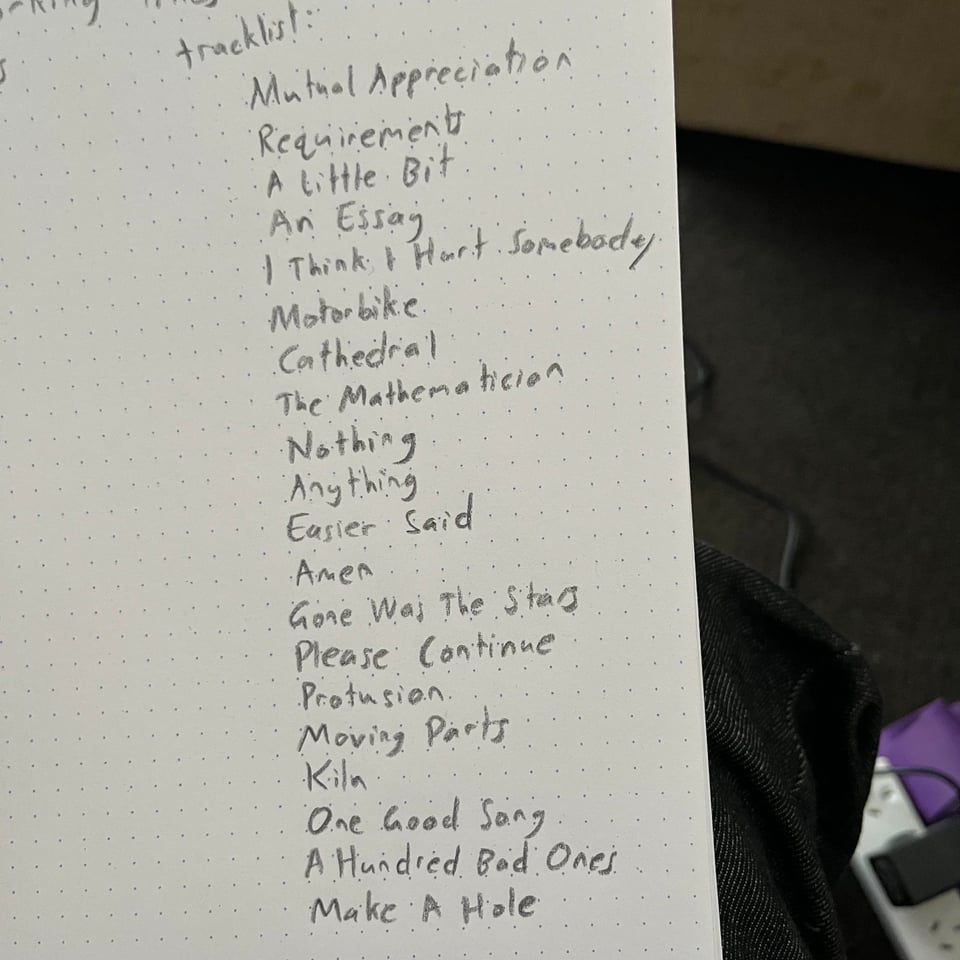 tracklist:
Mutual Appreciation
Requirements
A Little Bit
An Essay
I Think I Hurt Somebody
Motorbike
Cathedral
The Mathematician
Nothing
Anything
Easier Said
Amen
Gone Was The Stars
Please Continue
Protusion
Moving Parts
Kiln
One Good Song
A Hundred Bad Ones
Make A Hole